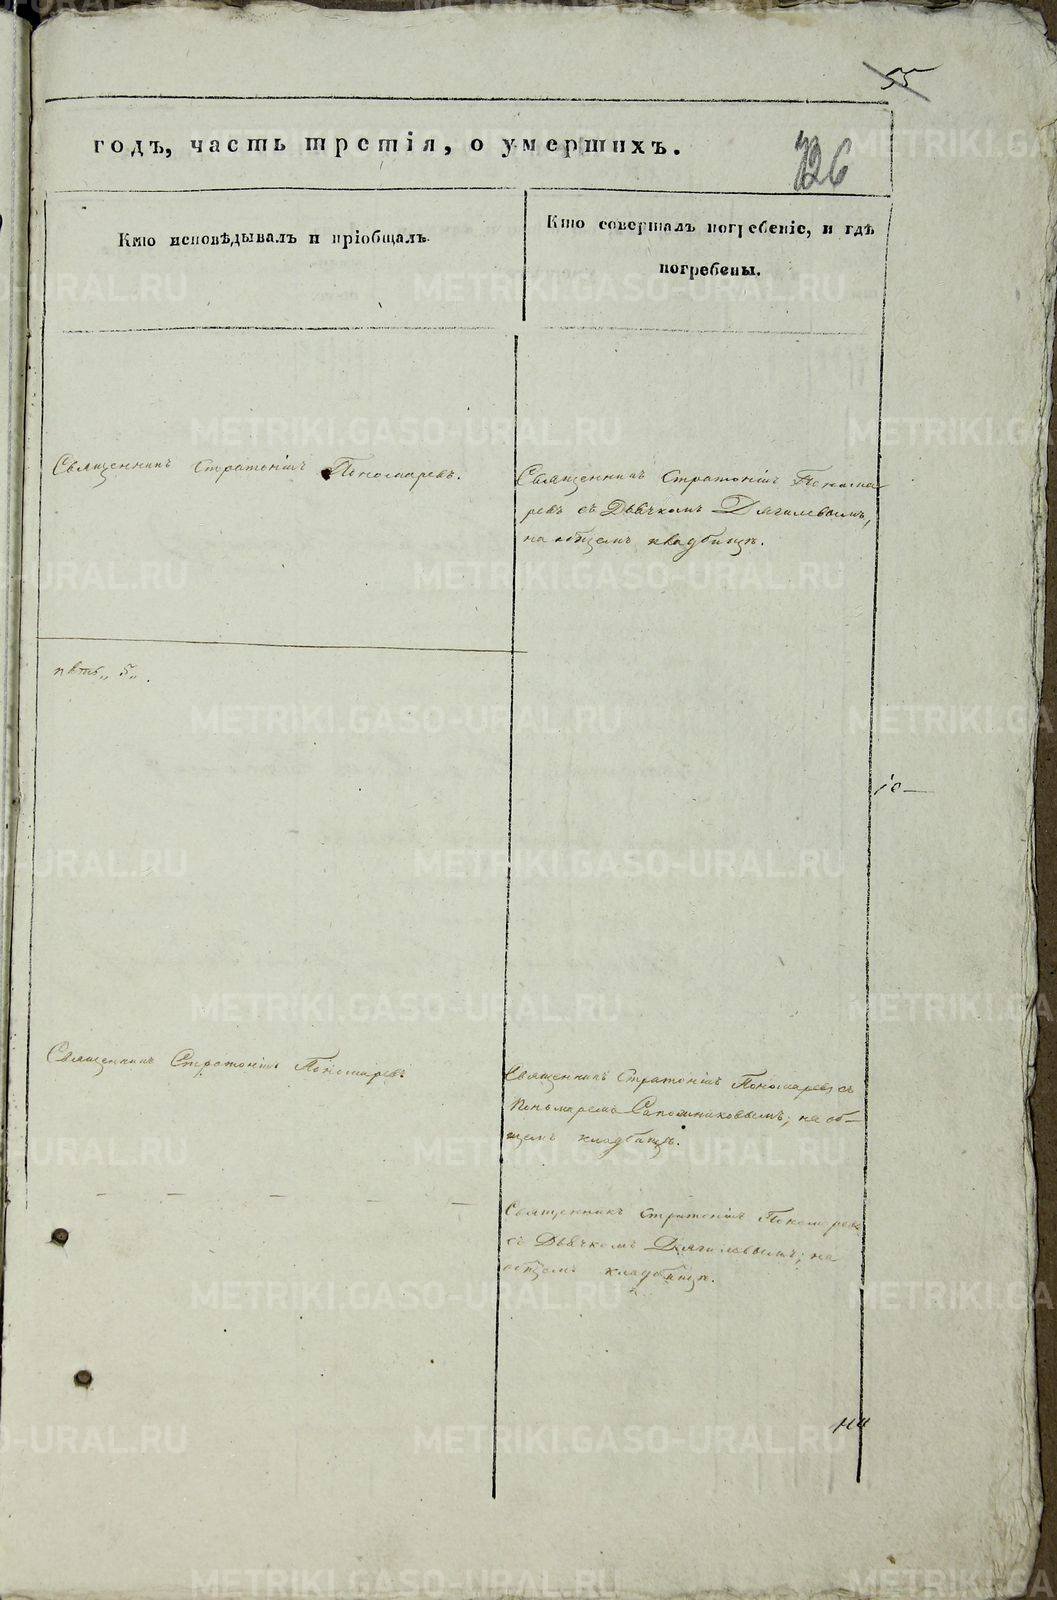 55
годъ, часть третія, о умершихъ.
126
Кто исповѣдывалъ и пріобщалъ.
Кто совершалъ погребеніе, и гдѣ
погребены.
Священникъ Стратоникъ Пономаревъ.
Священникъ Стратоникъ Понома
ревъ съ Дьячкомъ Дягилевымъ,
на общемъ кладбищѣ.
5
Священникъ Стратоникъ Пономаревъ
Священникъ Стратоникъ Пономаревъ съ
Пономаремъ Сапожниковымъ; на об-
щемъ кладбищѣ.
Священникъ Стратоникъ Пономаревъ
съ Дьячкомъ Дягилевымъ; на
общемъ кладбищѣ.
METRIKI.GASO-URAL.RU